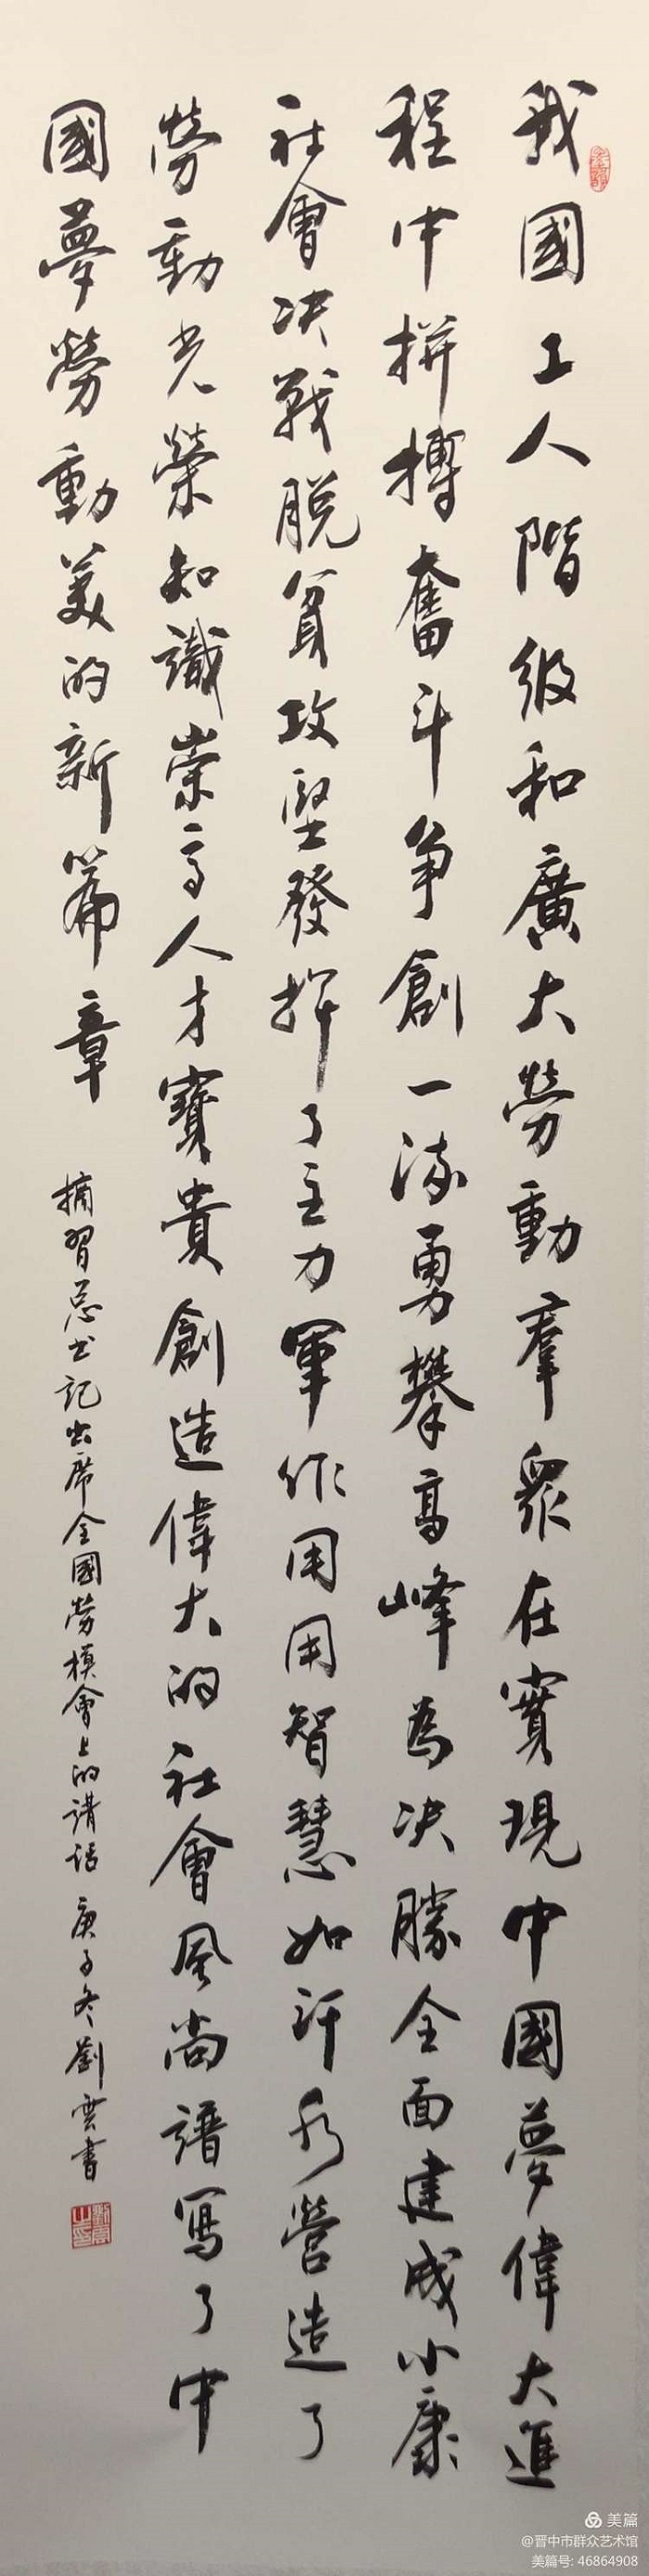 我國工人階級和廣大勞動羣眾在實現中國夢偉大進
程中拼搏奮斗争創一流勇攀高峰為决勝全面建成小康
社會决戰脱貧攻堅發揮了主力軍作用用智慧和汗水營造了
勞動光榮知識崇高人才寶貴創造偉大的社會風尚譜寫了中
國夢勞動美的新篇章
摘習总书記出席全國勞模會上的講話 庚子冬劉雲書
美篇
@晋中市群众艺术馆
美篇号: 46864908